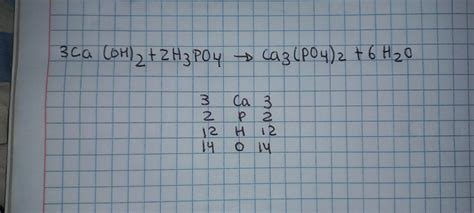 3Ca (OH)2 + 2H3PO4 → Ca3(PO4)2 + 6H2O
3 Ca 3
2 P 2
12 H 12
14 O 14